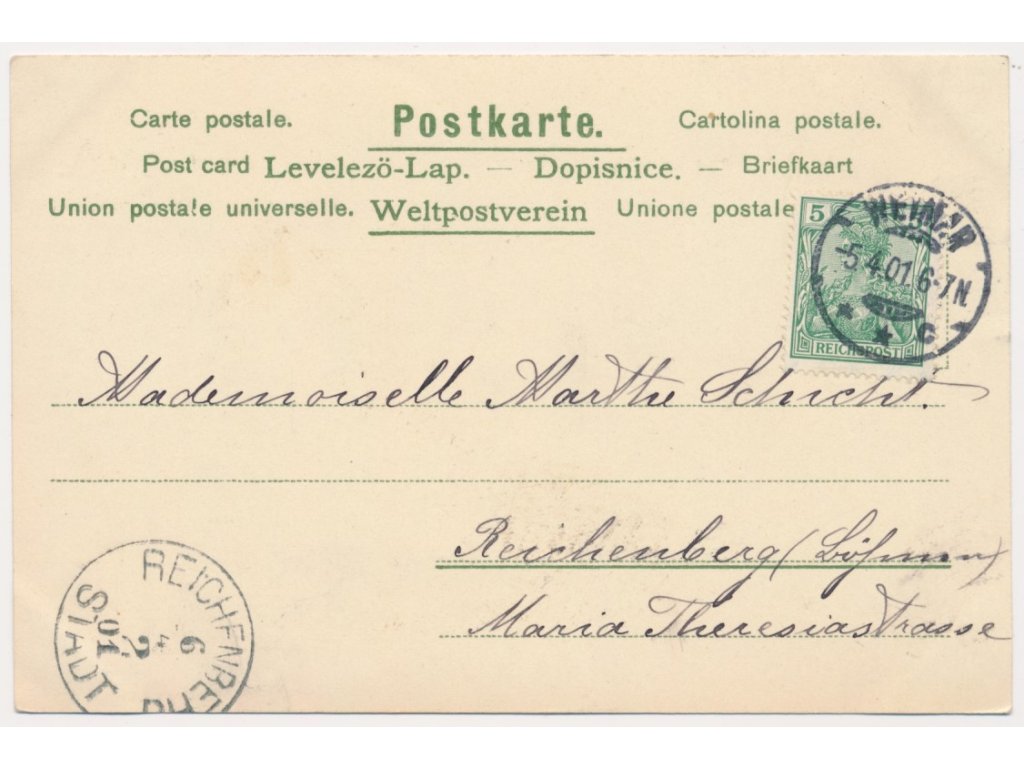 Carte postale. Postkarte. Cartolina postale.
Post card Levelező-Lap. — Dopisnice. — Briefkaart
Union postale universelle. Weltpostverein Unione postale
5
WEIMAR
-5.4.01.6-7N.
* * c
REICHSPOST
Mademoiselle Marthe Schicht.
Reichenberg (Böhmen)
Maria Theresiastrasse
REICHENBE
STADT
6
4
2
01